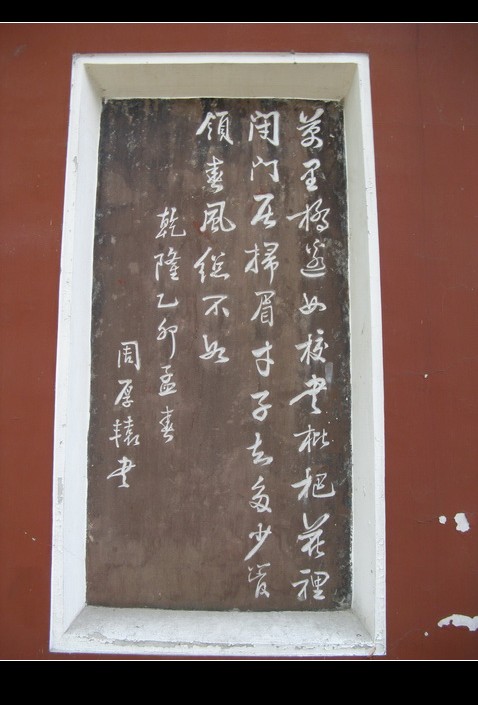 萬里橋邊女校書枇杷花裡
閉門居掃眉才子知多少管
領春風總不如
乾隆乙卯孟春
周厚轅書